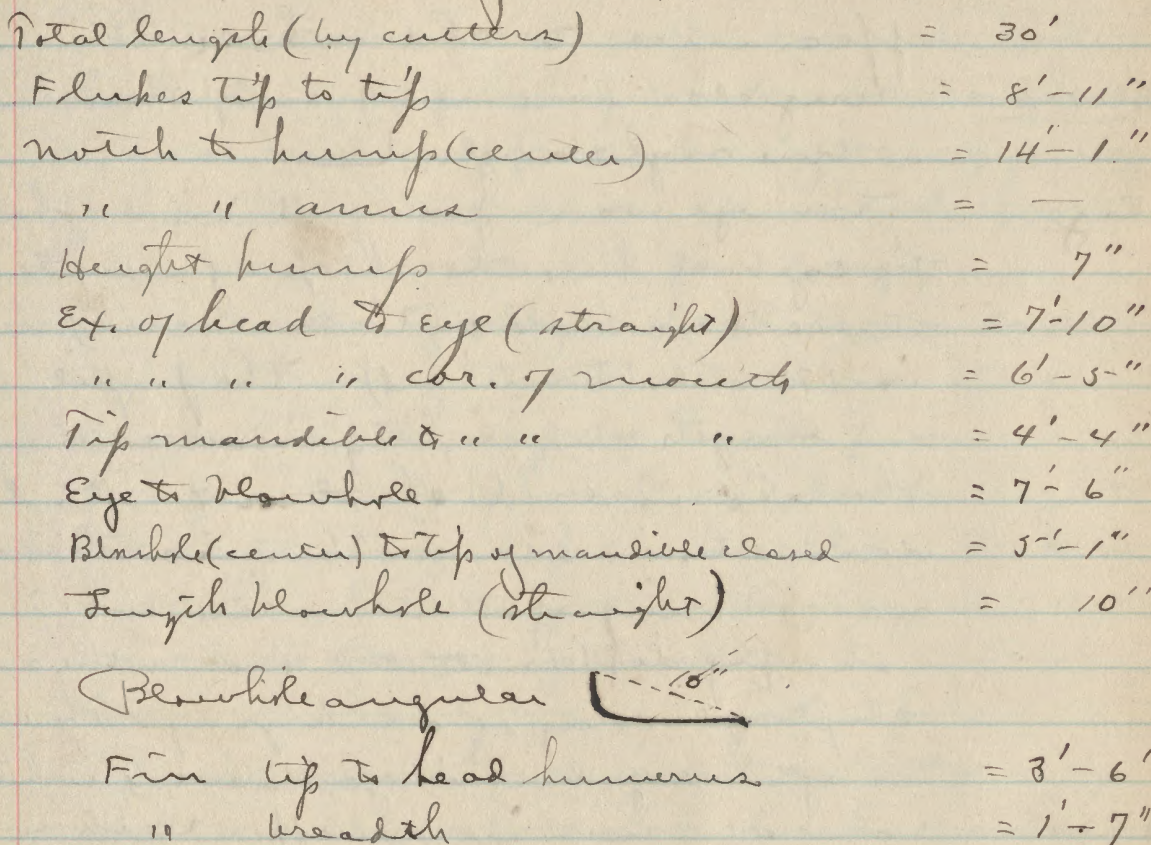 Total length (by cutters) = 30'
Flukes tip to tip = 8'-11"
Notch to hump (center) = 14'-1"
" " anus = —
Height hump = 7"
Ex. of head to eye (straight) = 7'-10"
" " " " cor. of mouth = 6'-5"
Tip mandible to " " " = 4'-4"
Eye to blowhole = 7'-6"
Blowhole (center) to tip of mandible closed = 5'-1"
Length blowhole (straight) = 10"
Blowhole angular 10"
Fin tip to head humerus = 3'-6'
" breadth = 1'-7"